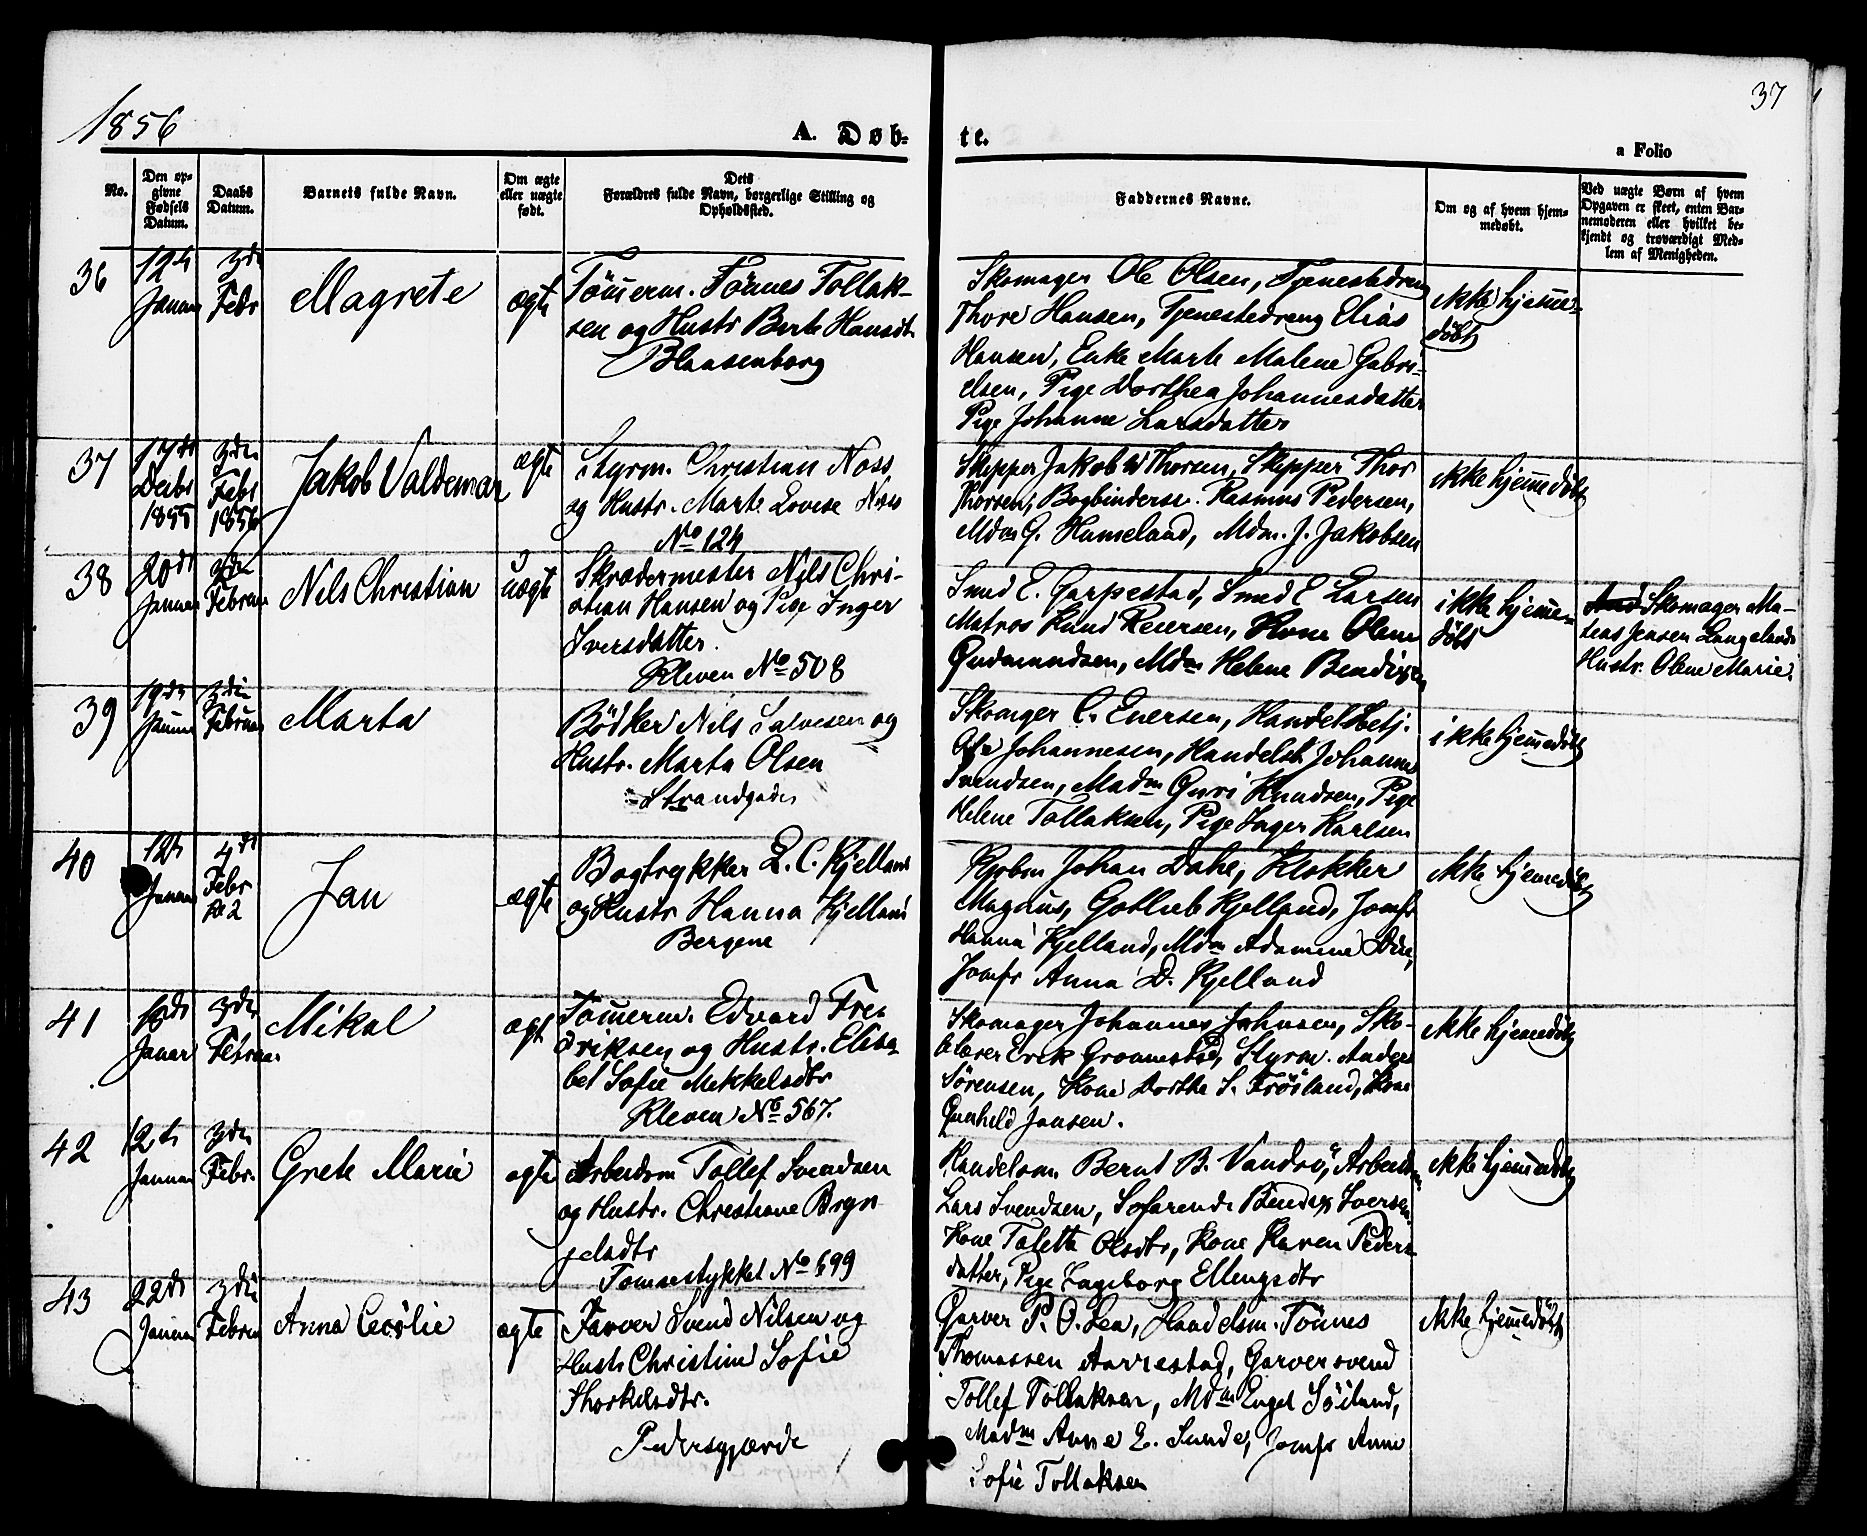 1856
A. Døb-
te.
37
a Folio
No.
Den op-
givne
Fødsels
Datum.
Daabs
Datum.
Barnets fulde Navn.
Om ægte
eller uægte
født.
Dets
Forældres fulde Navn, borgerlige Stilling og
Opholdssted.
Faddernes Navne.
Om og af hvem hjem-
medøbt.
Ved uægte Børn af hvem
Opgaven er skeet, enten Bar-
nemoderen eller hvilket be-
kjendt og troværdigt Med-
lem af Menigheden.
36
12te
Januar
3die
Febr
Magrete
ægte
Tömerm. Tönnes Tollak-
sen og Hustr Berte Hansdtr
Blaasenborg
Skomager Ole Olsen, Tjenestedreng
Thore Hansen, Tjenestedreng Elias
Hansen, Enke Marte Malene Gabri-
elsen, Pige Dorthea Johannesdatter
Pige Johanne Larsdatter
ikke hjeme-
döbt
37
17de
Decbr
1855
3die
Febr
1856
Jakob Valdemar
ægte
Styrm. Christian Noss
og Hustr. Marte Lovise Noss
No 124
Skipper Jakob Thorsen, Skipper Thor
Thorsen, Bogbinders. Rasmus Pedersen,
Mdm G. Humeland, Mdm. J. Jakobsen
ikke hjemedöbt
38
20de
Januar
3die
Februar
Nils Christian
uægte
Skrædermester Nils Chri-
stian Hansen og Pige Inger
Iversdatter.
Kleven No 508
Smed E. Garpestad, Smed E Larsen
Matros Knud Reiersen, Kone Olene
Gudmundsen, Mdm Helene Bendixen
ikke hjeme-
döbt
Skomager Ma-
teas Jensen Langelands
Hustr. Olene Marie.
39
19de
Januar
3die
Februar
Marta
Bödker Nils Salvesen og
Hustr. Marta Olsen
Strandgaden
Skomager C. Enersen, Handelsbetj.
Ole Johannesen, Handelsb Johannes
Svendsen, Madm Guri Knudsen, Pige
Helene Tollaksen, Pige Inger Karlsen
ikke hjemedöbt
40
12te
Januar
4de
Febr
Jan
ægte
Bogtrykker L. C. Kjelland
og Hustr Hanna Kjelland
Bergene
Kjöbm Johan Dahl, Klokker
Magnus, Gotlieb Kjelland, Jomfr
Hanna Kjelland, Mdm Adamine Due,
Jomfr Anna D. Kjelland
ikke hjemedöbt
41
18de
Januar
3die
Februar
Mikal
ægt
Tömerm. Edvard Fre-
driksen og Hustr. Elisa-
bet Sofie Mikkelsdtr
Kleven No 567.
Skomager Johannes Johnsen, Sko-
elærer Erik Gronnestad, Styrm. Anders
Sörensen, Kone Dorthe S. Fröiland, Kone
Gunhild Jansen.
ikke hjemedöbt
42
12te
Januar
3die
Febr.
Grete Marie
ægte
Arbeidsm Tollef Svendsen
og Hustr. Christiane Bryn-
jelsdtr
Tomsestykket No 699
Handelsm. Bernt B. Vandsö, Arbeidsm
Lars Svendsen, Söfarende Bendix Iversen,
Kone Taletta Olsdtr, Kone Karen Peders-
datter, Pige Ingeborg Ellingsdtr
ikke hjemedöbt
43
22de
Januar
3die
Februar
Anna Cecilie
ægte
Farver Svend Nilsen og
Hustr Christine Sofie
Thorkelsdtr.
Pedersgjerde
Garver P. O. Lea, Handelsm. Tönnes
Thomassen Aarrestad, Garversvend
Tollef Tollaksen, Mdm Engel Söiland,
Madm Anne E. Sunde, Jomfr Anne
Sofie Tollaksen
ikke hjemedöbt